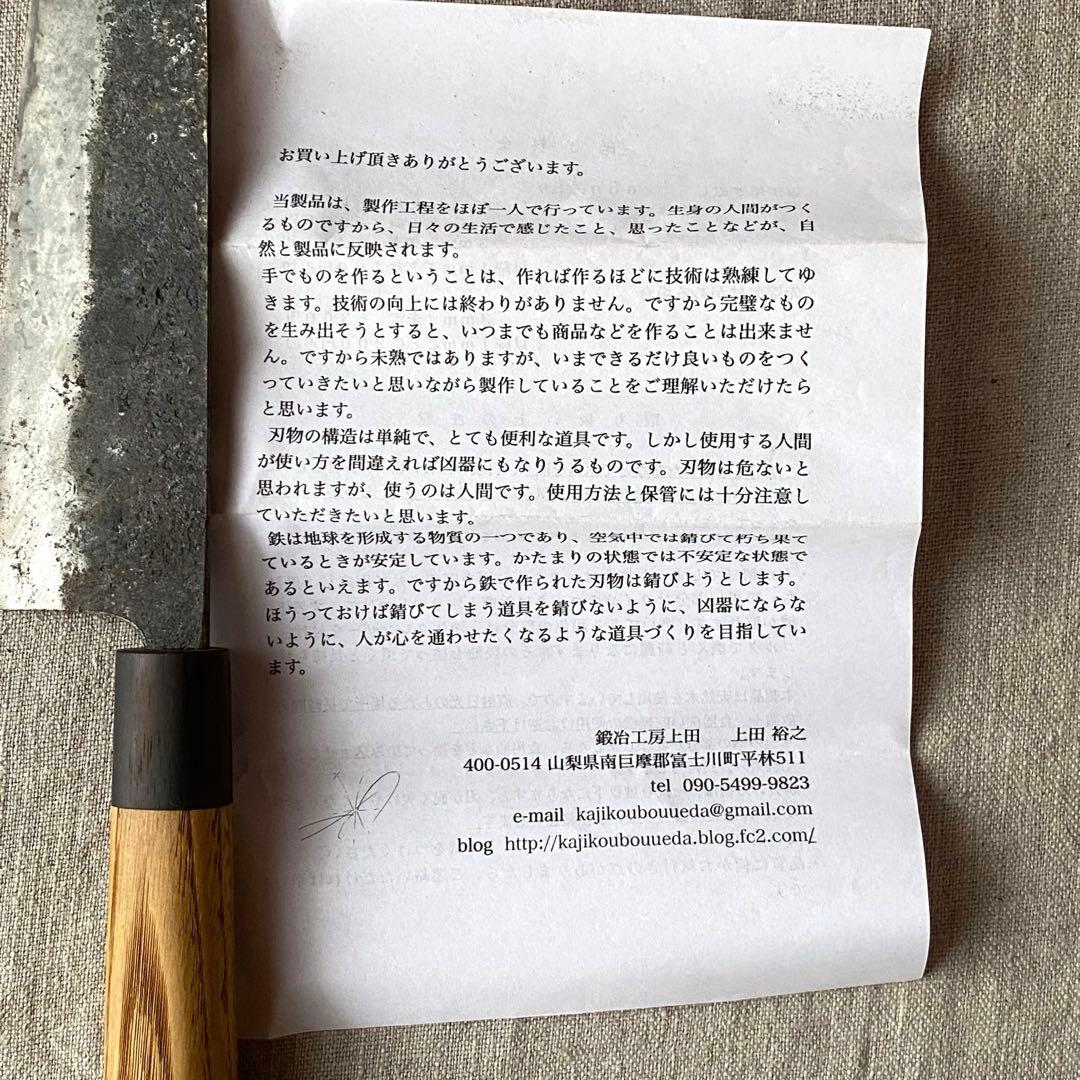 お買い上げ頂きありがとうございます。
当製品は、製作工程をほぼ一人で行っています。生身の人間がつく
るものですから、日々の生活で感じたこと、思ったことなどが、自
然と製品に反映されます。
手でものを作るということは、作れば作るほどに技術は熟練してゆ
きます。技術の向上には終わりがありません。ですから完璧なもの
を生み出そうとすると、いつまでも商品などを作ることは出来ませ
ん。ですから未熟ではありますが、いまできるだけ良いものをつく
っていきたいと思いながら製作していることをご理解いただけたら
と思います。
刃物の構造は単純で、とても便利な道具です。しかし使用する人間
が使い方を間違えれば凶器にもなりうるものです。刃物は危ないと
思われますが、使うのは人間です。使用方法と保管には十分注意し
ていただきたいと思います。
鉄は地球を形成する物質の一つであり、空気中では錆びて朽ち果て
ているときが安定しています。かたまりの状態では不安定な状態で
あるといえます。ですから鉄で作られた刃物は錆びようとします。
ほうっておけば錆びてしまう道具を錆びないように、凶器にならな
いように、人が心を通わせたくなるような道具づくりを目指してい
ます。
鍛冶工房上田　上田 裕之
400-0514 山梨県南巨摩郡富士川町平林511
tel 090-5499-9823
e-mail kajikoubouueda@gmail.com
blog http://kajikoubouueda.blog.fc2.com/